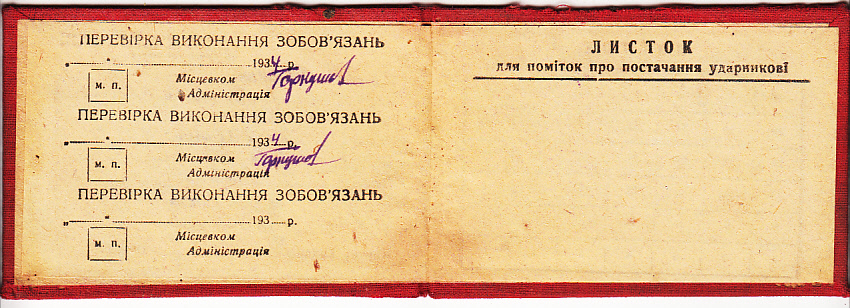 ПЕРЕВІРКА ВИКОНАННЯ ЗОБОВ'ЯЗАНЬ
„ “ 1934 р.
м. п.
Місцевком
Адміністрація
ПЕРЕВІРКА ВИКОНАННЯ ЗОБОВ'ЯЗАНЬ
„ “ 1934 р.
м. п.
Місцевком
Адміністрація
ПЕРЕВІРКА ВИКОНАННЯ ЗОБОВ'ЯЗАНЬ
„ “ 193 р.
м. п.
Місцевком
Адміністрація
ЛИСТОК
для поміток про постачання ударникові